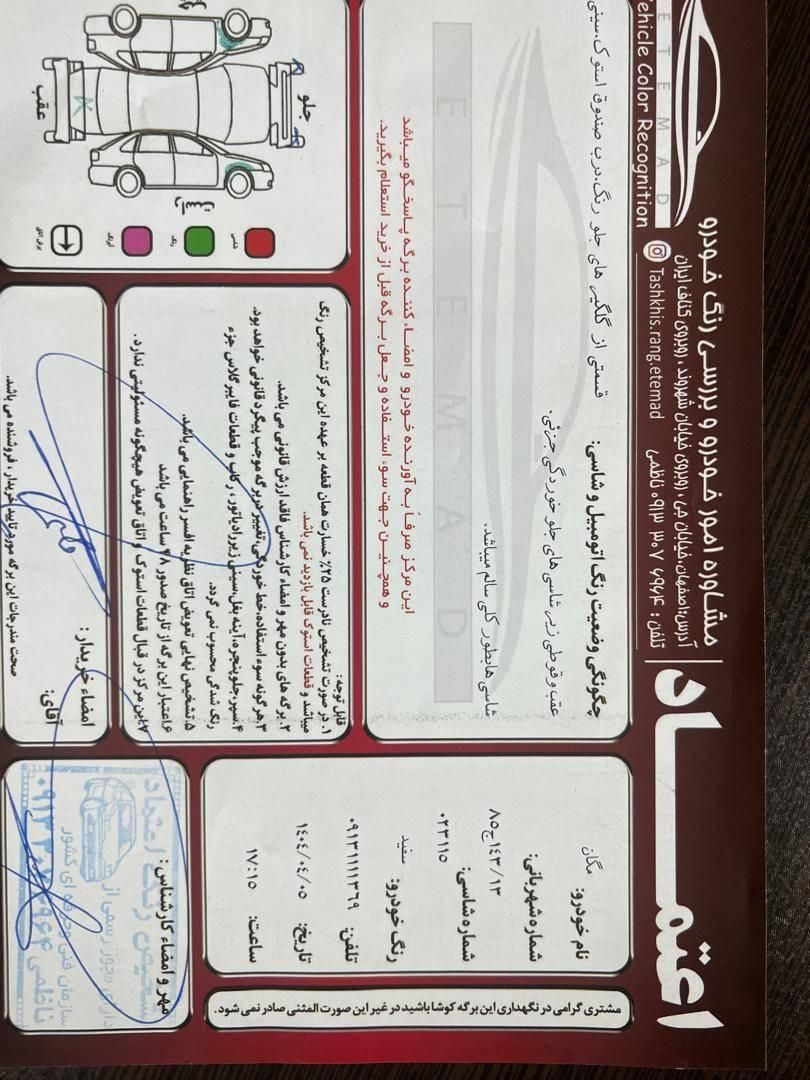 اعتمـــــاد
مشـاوره امور خـودرو و بررسی رنگ خـودرو
آدرس:اصفهان،خیابان جی ، روبروی خیابان شهروند ، روبروی کتلاف ایران
تلفن : ۶۹۶۴ ۳۰۷ ۰۹۱۳ ناظمی
Tashkhis.rang.etemad
ETEMAD
Vehicle Color Recognition
مشتری گرامی در نگهداری این برگه کوشا باشید در غیر این صورت المثنی صادر نمی شود.
نام خودرو: مگان
شماره شهربانی:
۱۳ / ۱۴۳ج۸۵
شماره شاسی:
۰۲۳۱۱۵
رنگ خودرو: سفید
تلفن: ۰۹۱۳۱۱۱۱۳۶۹
تاریخ: ۱۴۰۴/۰۴/۰۵
ساعت: ۱۷:۱۵
چگونگی وضعیت رنگ اتومبیل و شاسی:
قسمتی از گلگیر های جلو رنگ.درب صندوق استوک.سینی
عقب و قوطی زیر شاسی های جلو خوردگی جزئی.
شاسی هابطور کلی سالم میباشد.
ETEMAD
این مرکز صرفاً به آورنده خودرو و امضاء کننده برگه پاسخگو میباشد
و همچنین جهت سوء استفاده و جعل برگه قبل از خرید استعلام بگیرید.
جلو
عقب
راست
شاسی
رنگ
لیزنگ
قابل توجه:
۱. در صورت تشخیص نادرست ۲۵٪ خسارت همان قطعه بر عهده این مرکز تشخیص رنگ
میباشد و قطعات استوک قابل بازدید نمی باشد.
۲. برگه های بدون مهر و امضاء کارشناس فاقد ارزش قانونی می باشد.
۳.هر گونه سوء استفاده،خط خوردگی،تغییر در برگه موجب پیگرد قانونی خواهد بود.
۴.سپر،جلوپنجره،آینه بغل،سینی زیررادیاتور ، رکاب و قطعات فایبرگلاس جزء
رنگ شدگی محسوب نمی گردد.
۵.تشخیص نهایی تعویض اتاق نظر به افسر راهنمایی می باشد.
۶.اعتبار این برگه از تاریخ صدور ۴۸ ساعت می باشد
۷.این مرکز در قبال قطعات استوک و اتاق تعویض هیچگونه مسئولیتی ندارد.
امضاء خریدار:
آقای:
صحت مندرجات این برگه مورد تایید خریدار ، فروشنده می باشد.
مهر و امضاء کارشناس:
تشخیص رنگ اعتماد
دارای مجوز رسمی از
سازمان فنی حرفه ای کشور
ناظمی